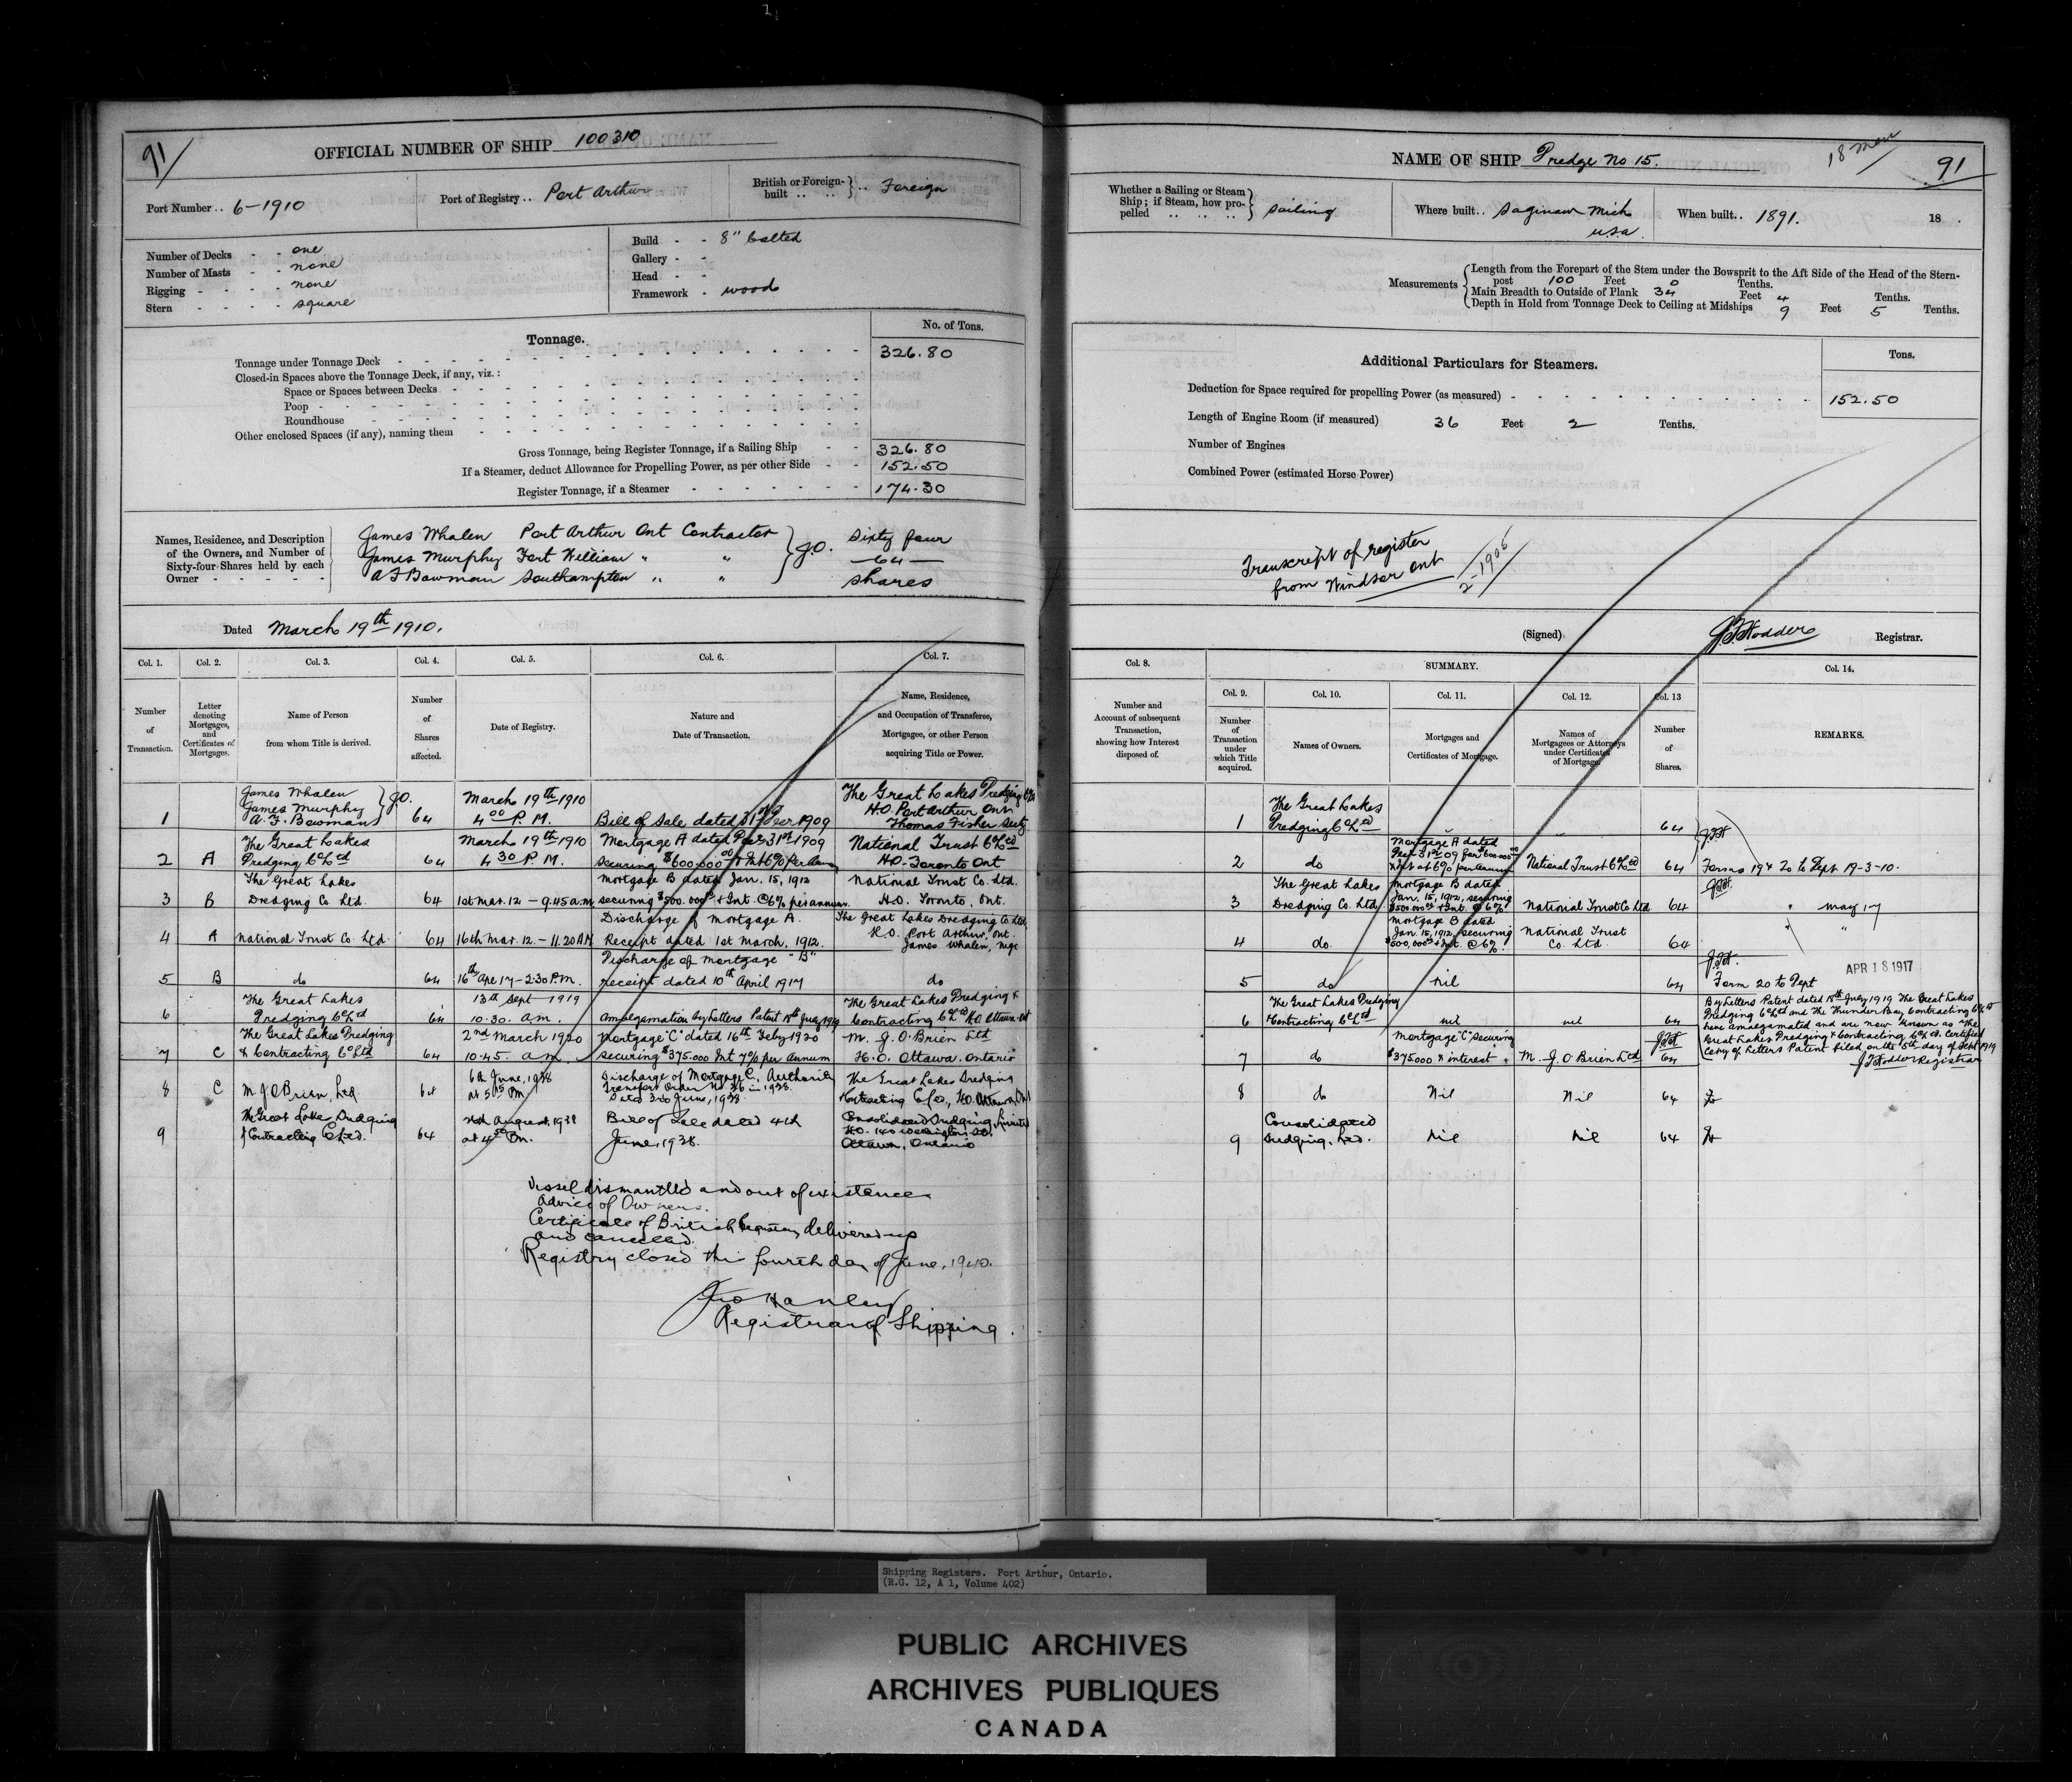 91
OFFICIAL NUMBER OF SHIP 100310
Port Number .. 6-1910
Port of Registry .. Port Arthur
British or Foreign-built .. .. } .. Foreign
Number of Decks - - one
Number of Masts - - none
Rigging - - - - none
Stern - - - - square
Build - - 8" bolted
Gallery - -
Head - -
Framework - wood
Tonnage.
No. of Tons.
Tonnage under Tonnage Deck 326.80
Closed-in Spaces above the Tonnage Deck, if any, viz.:
Space or Spaces between Decks
Poop
Roundhouse
Other enclosed Spaces (if any), naming them
Gross Tonnage, being Register Tonnage, if a Sailing Ship 326.80
If a Steamer, deduct Allowance for Propelling Power, as per other Side 152.50
Register Tonnage, if a Steamer 174.30
Names, Residence, and Description
of the Owners, and Number of
Sixty-four Shares held by each
Owner
James Whalen Port Arthur Ont Contractor
James Murphy Fort William " "
A F Bowman Southampton " "
J.O.
Sixty four
-64-
shares
Dated March 19th 1910.
Col. 1. Col. 2. Col. 3. Col. 4. Col. 5. Col. 6. Col. 7.
Number of Transaction.
Letter denoting Mortgages, and Certificates of Mortgages.
Name of Person from whom Title is derived.
Number of Shares affected.
Date of Registry.
Nature and Date of Transaction.
Name, Residence, and Occupation of Transferee, Mortgagee, or other Person acquiring Title or Power.
1 James Whalen James Murphy A. F. Bowman } J.O. 64 March 19th 1910 4 00 P.M. Bill of Sale dated 31st Decr 1909 The Great Lakes Dredging Co Ltd H.O. Port Arthur Ont Thomas Fisher Secty
2 A The Great Lakes Dredging Co Ltd 64 March 19th 1910 4 30 P.M. Mortgage A dated Decr 31st 1909 securing $600.000 00 & Int 6% Per Annum National Trust Co Ltd H.O. Toronto Ont
3 B The Great Lakes Dredging Co. Ltd. 64 1st Mar. 12 - 9.45 a.m. Mortgage B dated Jan. 15, 1912 securing $500.000 00 & Int. @ 6% per annum. National Trust Co. Ltd. H.O. Toronto, Ont.
4 A National Trust Co. Ltd. 64 16th Mar. 12. - 11.20 AM Discharge of Mortgage A. Receipt dated 1st March, 1912. The Great Lakes Dredging Co. Ltd, H.O. Port Arthur, Ont. James Whalen, Mgr
5 B do 64 16th Apr 17 - 2.30 P.M. Discharge of Mortgage "B" receipt dated 10th April 1917 do
6 The Great Lakes Dredging Co Ltd 64 13th Sept 1919 10.30. a.m. Amalgamation by Letters Patent 18th July 1919 The Great Lakes Dredging & Contracting Co Ltd H.O Ottawa Ont
7 C The Great Lakes Dredging & Contracting Co Ltd 64 2nd March 1920 10.45. a.m Mortgage "C" dated 16th Feby 1920 securing $375.000 Int 7% per Annum M. J. O. Brien Ltd H.O. Ottawa. Ontario
8 C M J O'Brien, Ltd. 64 6th June, 1938 at PM Discharge of Mortgage C, Authority Transport Order No 36 in 1938. Dated 3rd June, 1938 The Great Lakes Dredging Contracting Co Ltd., H.O. Ottawa, Ont
9 The Great Lakes Dredging & Contracting Co Ltd. 64 August, 1938 at 4 PM. Bill of Sale dated 4th June, 1938. Consolidated Dredging, Limited H.O. 140 Wellington St. Ottawa, Ontario
Vessel dismantled and out of existence
Advice of Owners.
Certificate of British Registry delivered up
and cancelled.
Registry closed this fourth day of June, 1940.
Jno Hanley
Registrar of Shipping.
NAME OF SHIP Dredge No 15.
18 men
91
Whether a Sailing or Steam Ship; if Steam, how propelled .. .. .. } Sailing
Where built .. Saginaw Mich U.S.A.
When built .. 1891. 18 .
Measurements
Length from the Forepart of the Stem under the Bowsprit to the Aft Side of the Head of the Stern-
post 100 Feet 0 Tenths.
Main Breadth to Outside of Plank 34 Feet 4 Tenths.
Depth in Hold from Tonnage Deck to Ceiling at Midships 9 Feet 5 Tenths.
Additional Particulars for Steamers.
Tons.
Deduction for Space required for propelling Power (as measured) 152.50
Length of Engine Room (if measured) 36 Feet 2 Tenths.
Number of Engines
Combined Power (estimated Horse Power)
Transcript of register
from Windsor Ont
2-1906
(Signed) J. F. Hodder Registrar.
Col. 8. SUMMARY. Col. 14.
Col. 9. Col. 10. Col. 11. Col. 12. Col. 13
Number and Account of subsequent Transaction, showing how Interest disposed of.
Number of Transaction under which Title acquired.
Names of Owners.
Mortgages and Certificates of Mortgage.
Names of Mortgagees or Attorneys under Certificates of Mortgage.
Number of Shares.
REMARKS.
1 The Great Lakes Dredging Co Ltd " " 64
2 do Mortgage A dated Decr 31st 09 for $600.000 00 & Int at 6% per Annum National Trust Co Ltd 64 Forms 19 & 20 to Dept 19-3-10.
3 The Great Lakes Dredging Co. Ltd Mortgage B dated Jan. 15, 1912, securing $500.000 00 & Int. @ 6% National Trust Co Ltd 64 " May 17
4 do. Mortgage B dated Jan. 15, 1912, securing $500,000 00 & Int. @ 6%. National Trust Co. Ltd. 64 " "
5 do nil 64 Form 20 to Dept
APR 18 1917
6 The Great Lakes Dredging & Contracting Co Ltd nil nil 64 By Letters Patent dated 18th July 1919 The Great Lakes
Dredging Co Ltd and The Thunder Bay Contracting Co Ltd
have amalgamated and are now known as "The
Great Lakes Dredging & Contracting Co Ltd. Certified
Copy of Letters Patent filed on the 5th day of Sept 1919
J F Hodder Registrar
7 do Mortgage "C" securing $375000 & interest M. J. O Brien Ltd 64
8 do Nil Nil 64
9 Consolidated Dredging, Ltd. Nil Nil 64
Shipping Registers. Port Arthur, Ontario.
(R.G. 12, A 1, Volume 402)
PUBLIC ARCHIVES
ARCHIVES PUBLIQUES
CANADA